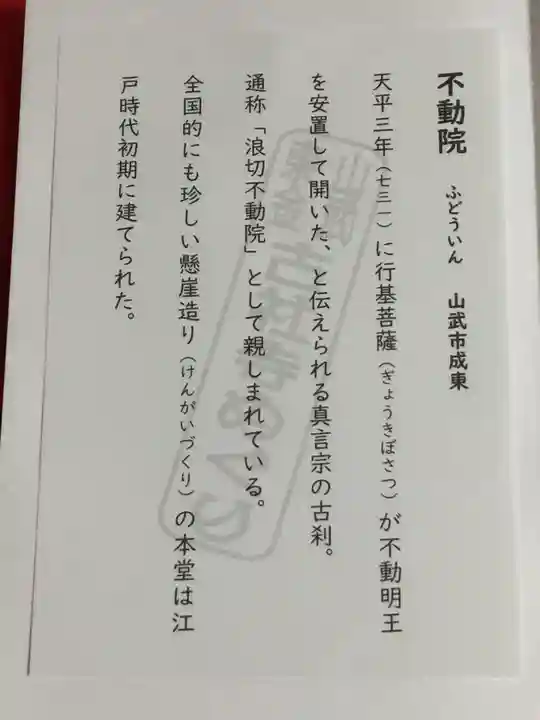 不動院 ふどういん 山武市成東
天平三年(七三一)に行基菩薩(ぎょうきぼさつ)が不動明王
を安置して開いた、と伝えられる真言宗の古刹。
通称「浪切不動院」として親しまれている。
全国的にも珍しい懸崖造り(けんがいづくり)の本堂は江
戸時代初期に建てられた。